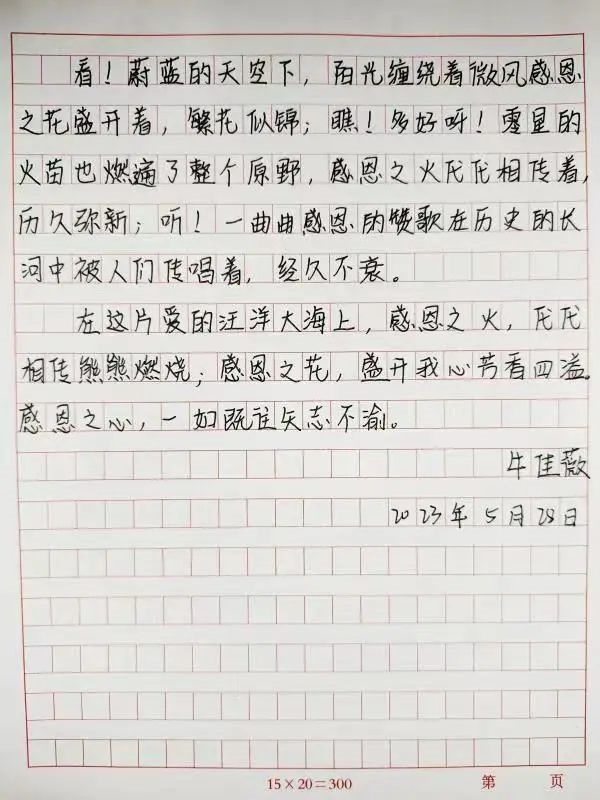 看！蔚蓝的天空下，阳光缠绕着微风感恩
之花盛开着，繁花似锦；瞧！多好呀！零星的
火苗也燃遍了整个原野，感恩之火代代相传着，
历久弥新；听！一曲曲感恩的赞歌在历史的长
河中被人们传唱着，经久不衰。
在这片爱的汪洋大海上，感恩之火，代代
相传熊熊燃烧；感恩之花，盛开我心芳香四溢。
感恩之心，一如既往矢志不渝。
牛佳薇
2023年5月28日
15×20=300
第 页